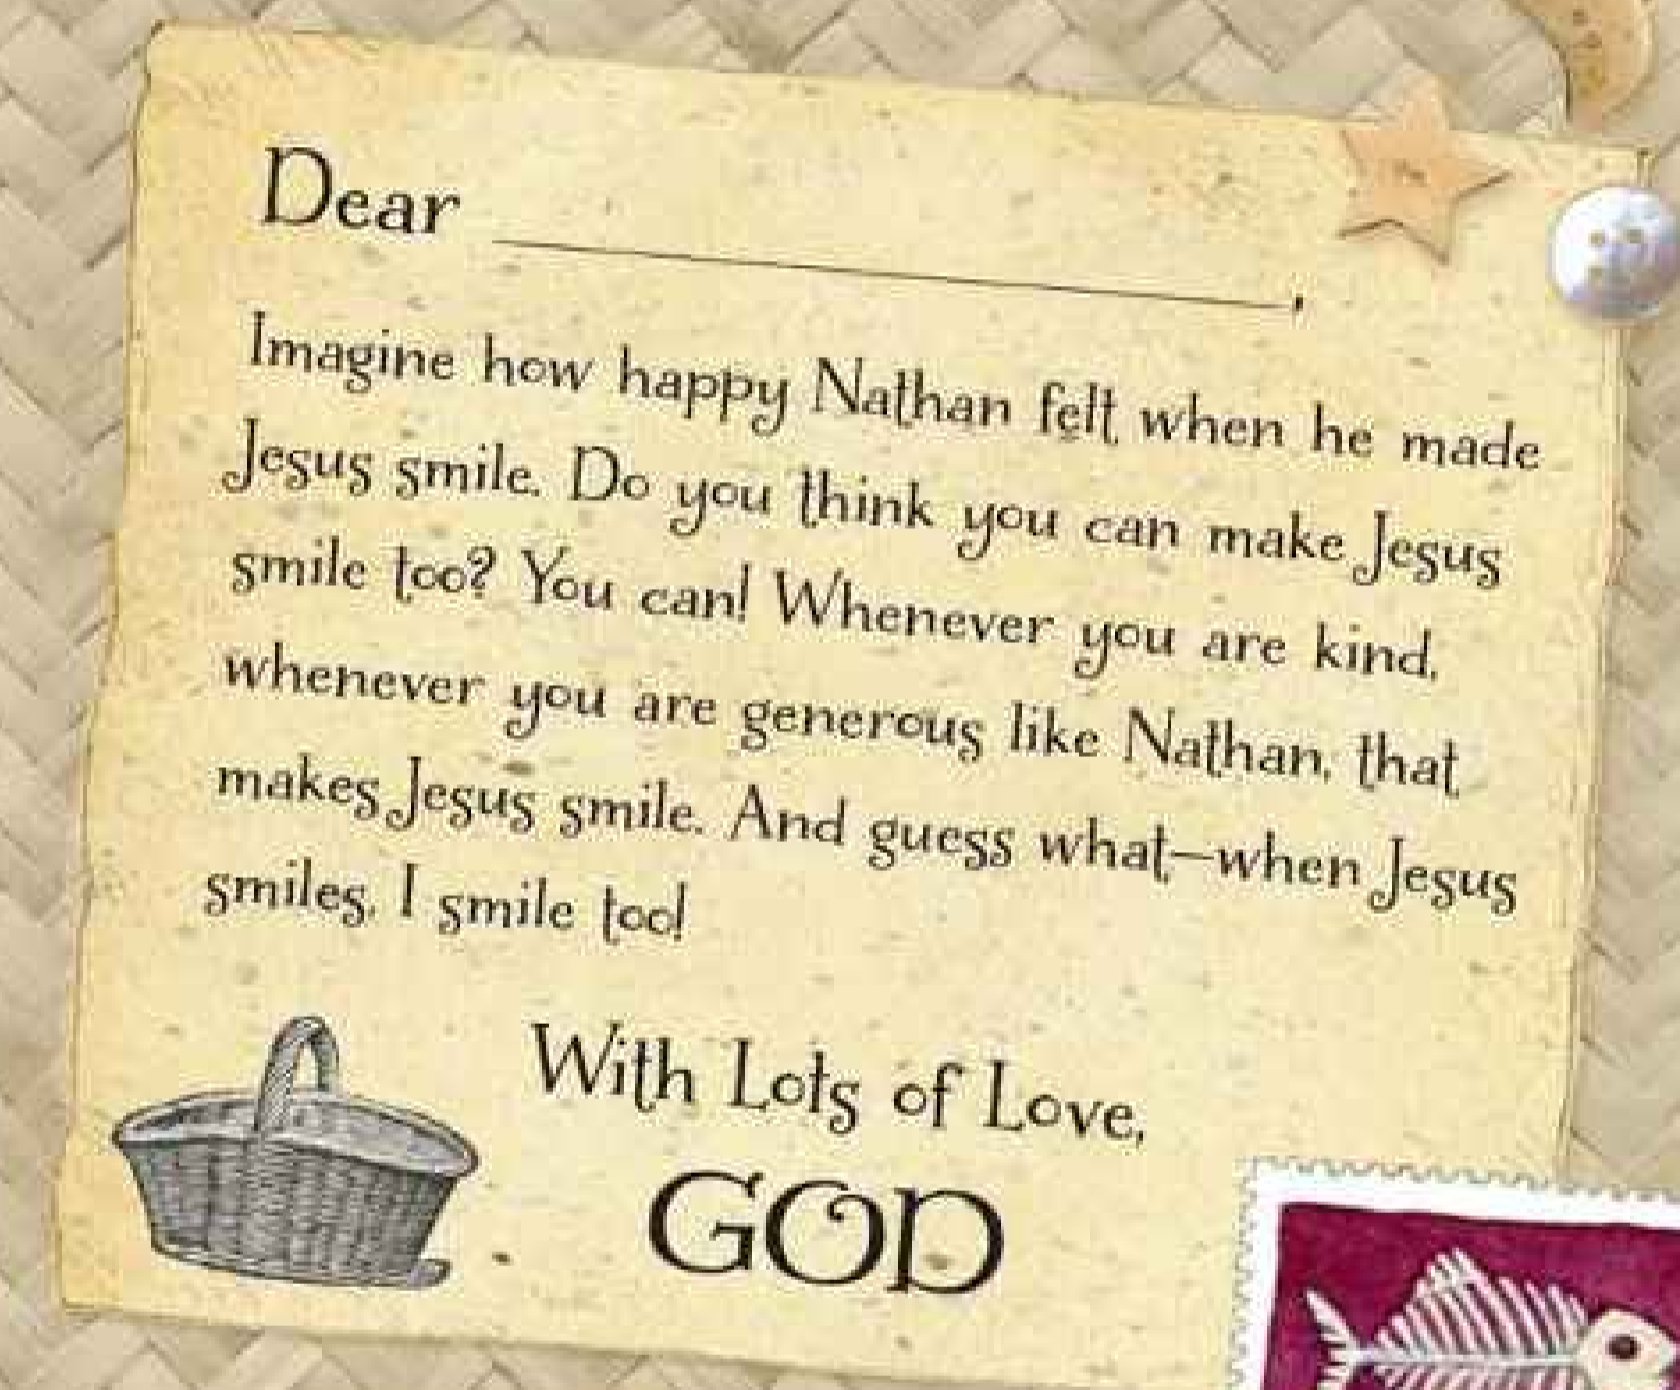 Dear ____________________,
Imagine how happy Nathan felt when he made
Jesus smile. Do you think you can make Jesus
smile too? You can! Whenever you are kind,
whenever you are generous like Nathan, that
makes Jesus smile. And guess what—when Jesus
smiles, I smile too!
With Lots of Love,
GOD